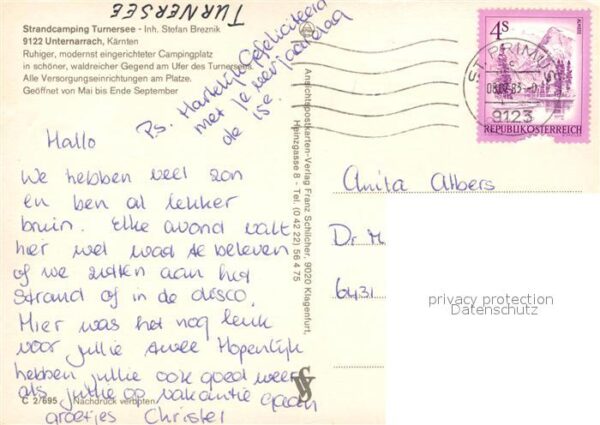 TURNERSEE
Strandcamping Turnersee - Inh. Stefan Breznik
9122 Unternarrach, Kärnten
Ruhiger, modernst eingerichteter Campingplatz
in schöner, waldreicher Gegend am Ufer des Turnersees
Alle Versorgungseinrichtungen am Platze.
Geöffnet von Mai bis Ende September
Ps. Hartelijk Gefeliciteerd
met je verjaardag
de 15e.
Hallo
We hebben veel zon
en ben al lekker
bruin. Elke avond valt
hier wel wat te beleven
of we zitten aan het
strand of in de disco.
Hier was het nog leuk
voor jullie Hopenlijk
hebben jullie ook goed weer
als jullie op vakantie gaan
groetjes Christel
C 2/695 Nachdruck verboten
Ansichtspostkarten-Verlag Franz Schilcher, 9020 Klagenfurt,
Heinzgasse 8 - Tel. (0 42 22) 56 4 75
4S
ALMSEE
REPUBLIK ÖSTERREICH
ST. PRIMUS
9123
Anita Albers
Dr M
6431
privacy protection
Datenschutz